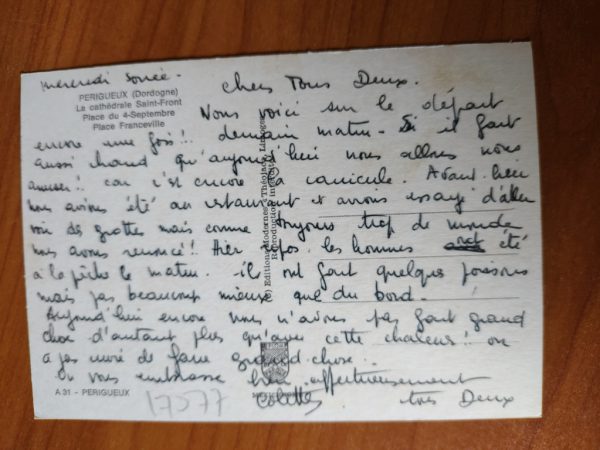 mercredi soirée.
PERIGUEUX (Dordogne)
La cathédrale Saint-Front
Place du 4-Septembre
Place Francheville
Chers Tous Deux.
Nous voici sur le départ
encore une fois!! demain matin - Si il fait
aussi chaud qu'aujourd'hui nous allons nous
amuser! car c'est encore la canicule. Avant hier
nous avions été au restaurant et avions essayé d'aller
voir des grottes mais comme toujours trop de monde
nous avons renoncé!! Hier repos. les hommes ont été
à la pêche le matin. ils ont fait quelques poissons
mais pas beaucoup mieux que du bord.
Aujourd'hui encore nous n'avons pas fait grand
chose d'autant plus qu'avec cette chaleur!! on
a pas envie de faire grand chose.
On vous embrasse bien affectueusement
Colette
tous Deux
A 31 - PERIGUEUX
17577
(c) Editions Modernes "Théojac", Limoges
Reproduction interdite